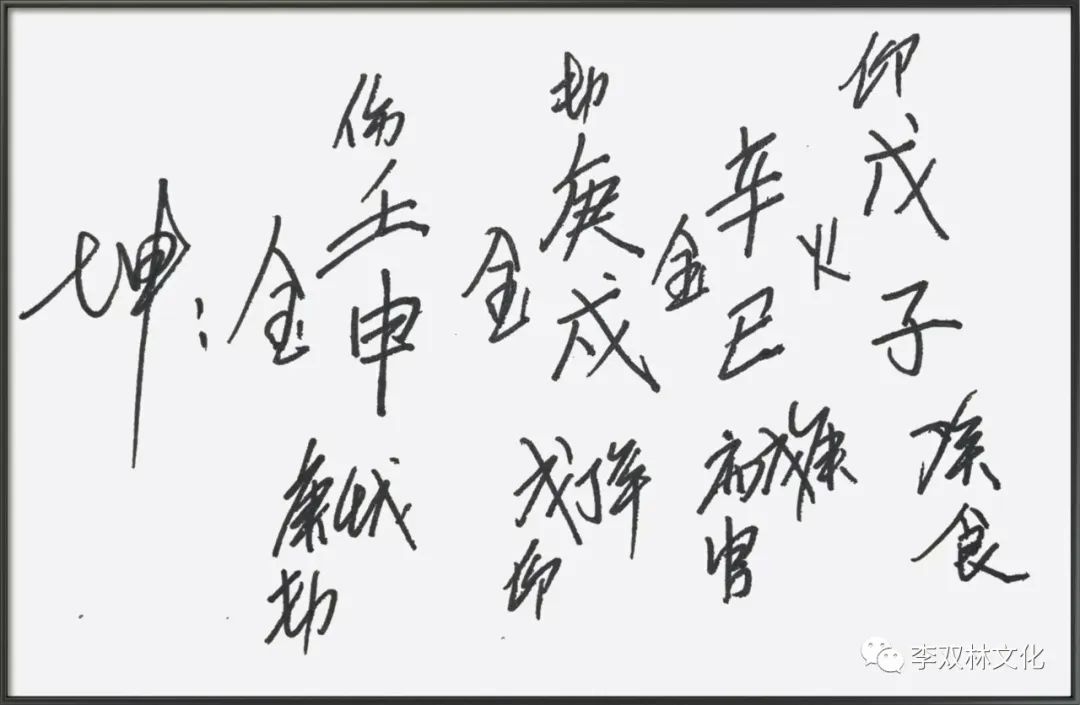 伤 劫 印
坤: 金 壬 金 庚 金 辛 火 戊
申 戌 巳 子
庚壬戊 戊丁辛 丙戊庚 癸
劫 印 官 食
李双林文化